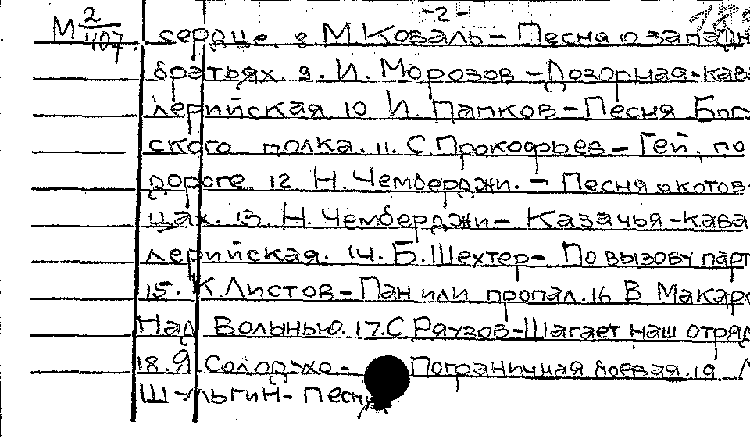 -2-
М 2/407
сердце. 8 М. Коваль - Песня о запад
братьях. 9. И. Морозов - Дозорная-кава
лерийская 10 И. Папков - Песня Бог
ского полка. 11. С. Прокофьев - Гей, по
дороге 12 Н. Чемберджи. - Песня о котов
цах. 13 Н. Чемберджи - Казачья-кава
лерийская. 14. Б. Шехтер - По вызову парт
15. К. Листов - Пан или пропал. 16 В Макаро
Над Волынью. 17. С Раузов - Шагает наш отряд
18. Я Солодухо - Пограничная боевая. 19
Шульгин - Песня